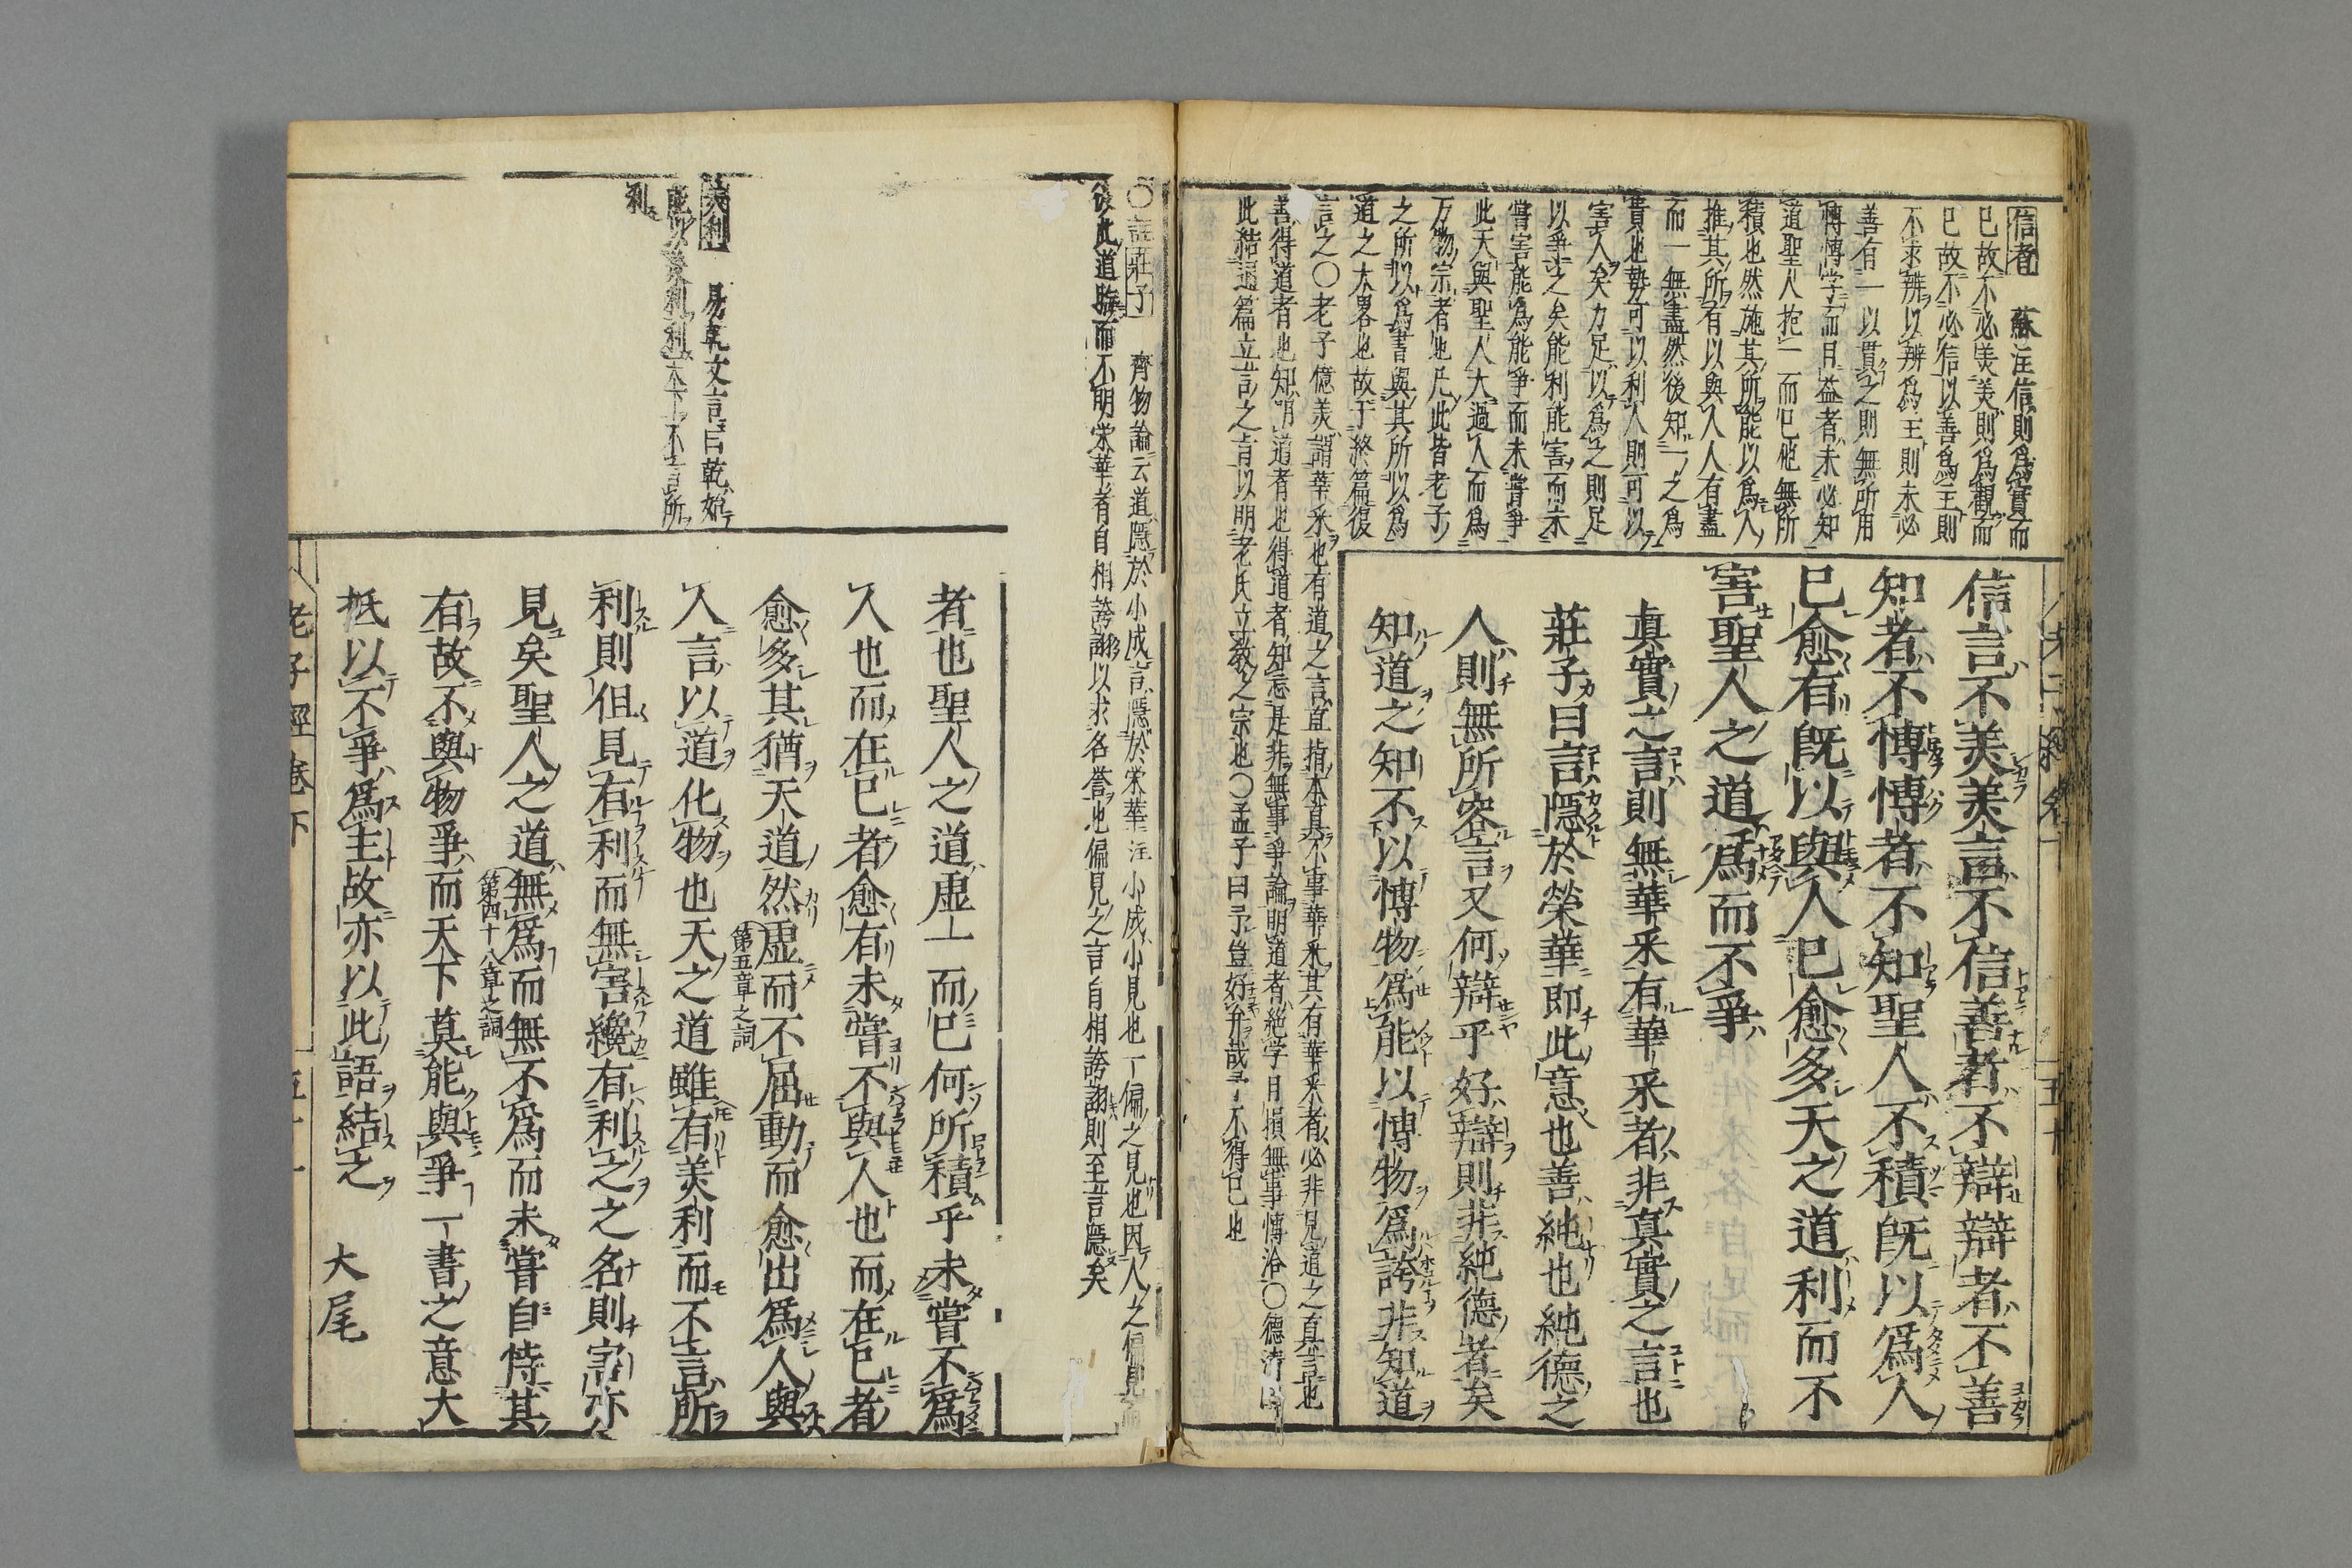 信者　蘇注信則爲實而
已故不必美美則爲觀而
已故不必信以善爲主則
不求辨以辨爲王則未必
善有一以貫之則無所用
博博学而日益者未必知
道聖人抱一而已他無所
積也然施其所能以爲人
推其所有以與人人有盡
而一無盡然後知一之爲
貴也勢可以利人則可以
害人矣力足以爲之則足
以爭之矣能利能害而未
嘗害能爲能爭而未嘗爭
此天與聖人大過人而爲
万物宗者也凡此皆老子
之所以爲書與其所以爲
道之大畧也故于終篇復
言之〇老子億美謂華釆也有道之言直指本真不事華釆其有華釆者必非見道之真言也
善得道者也知明道者也得道者知忘是非無事爭論明道者絶学日損無事博洽〇德清曰
此結通篇立言之旨以明老氏立教之宗也〇孟子曰予豈好弁哉予不得已也
信言不美美言不信善者不辯辯者不善
知者不博博者不知聖人不積既以爲人
已愈有既以與人已愈多天之道利而不
害聖人之道爲而不爭
真實之言則無華釆有華釆者非真實之言也
莊子曰言隱於榮華即此意也善純也純德之
人則無所容言又何辯乎好辯則非純德者矣
知道之知不以博物爲能以博物爲誇非知道
五十
〇註莊子　齊物論云道隱於小成言隱於栄華注小成小見也一偏之見也因人之偏見而
後此道晦而不明栄華者自相誇詡以求名誉也偏見之言自相誇詡則至言隱矣
美利　易乾文言曰乾始
能以美利利天下不言所
利
者也聖人之道虛一而已何所積乎未嘗不爲
人也而在已者愈有未嘗不與人也而在已者
愈多其猶天道然虛而不屈動而愈出爲人與
第五章之詞
人言以道化物也天之道雖有美利而不言所
利則但見有利而無害纔有利之之名則害亦
見矣聖人之道無爲而無不爲而未嘗自恃其
第四十八章之詞
有故不與物爭而天下莫能與爭一書之意大
抵以不爭爲主故亦以此語結之　大尾
老子經卷下
五十一